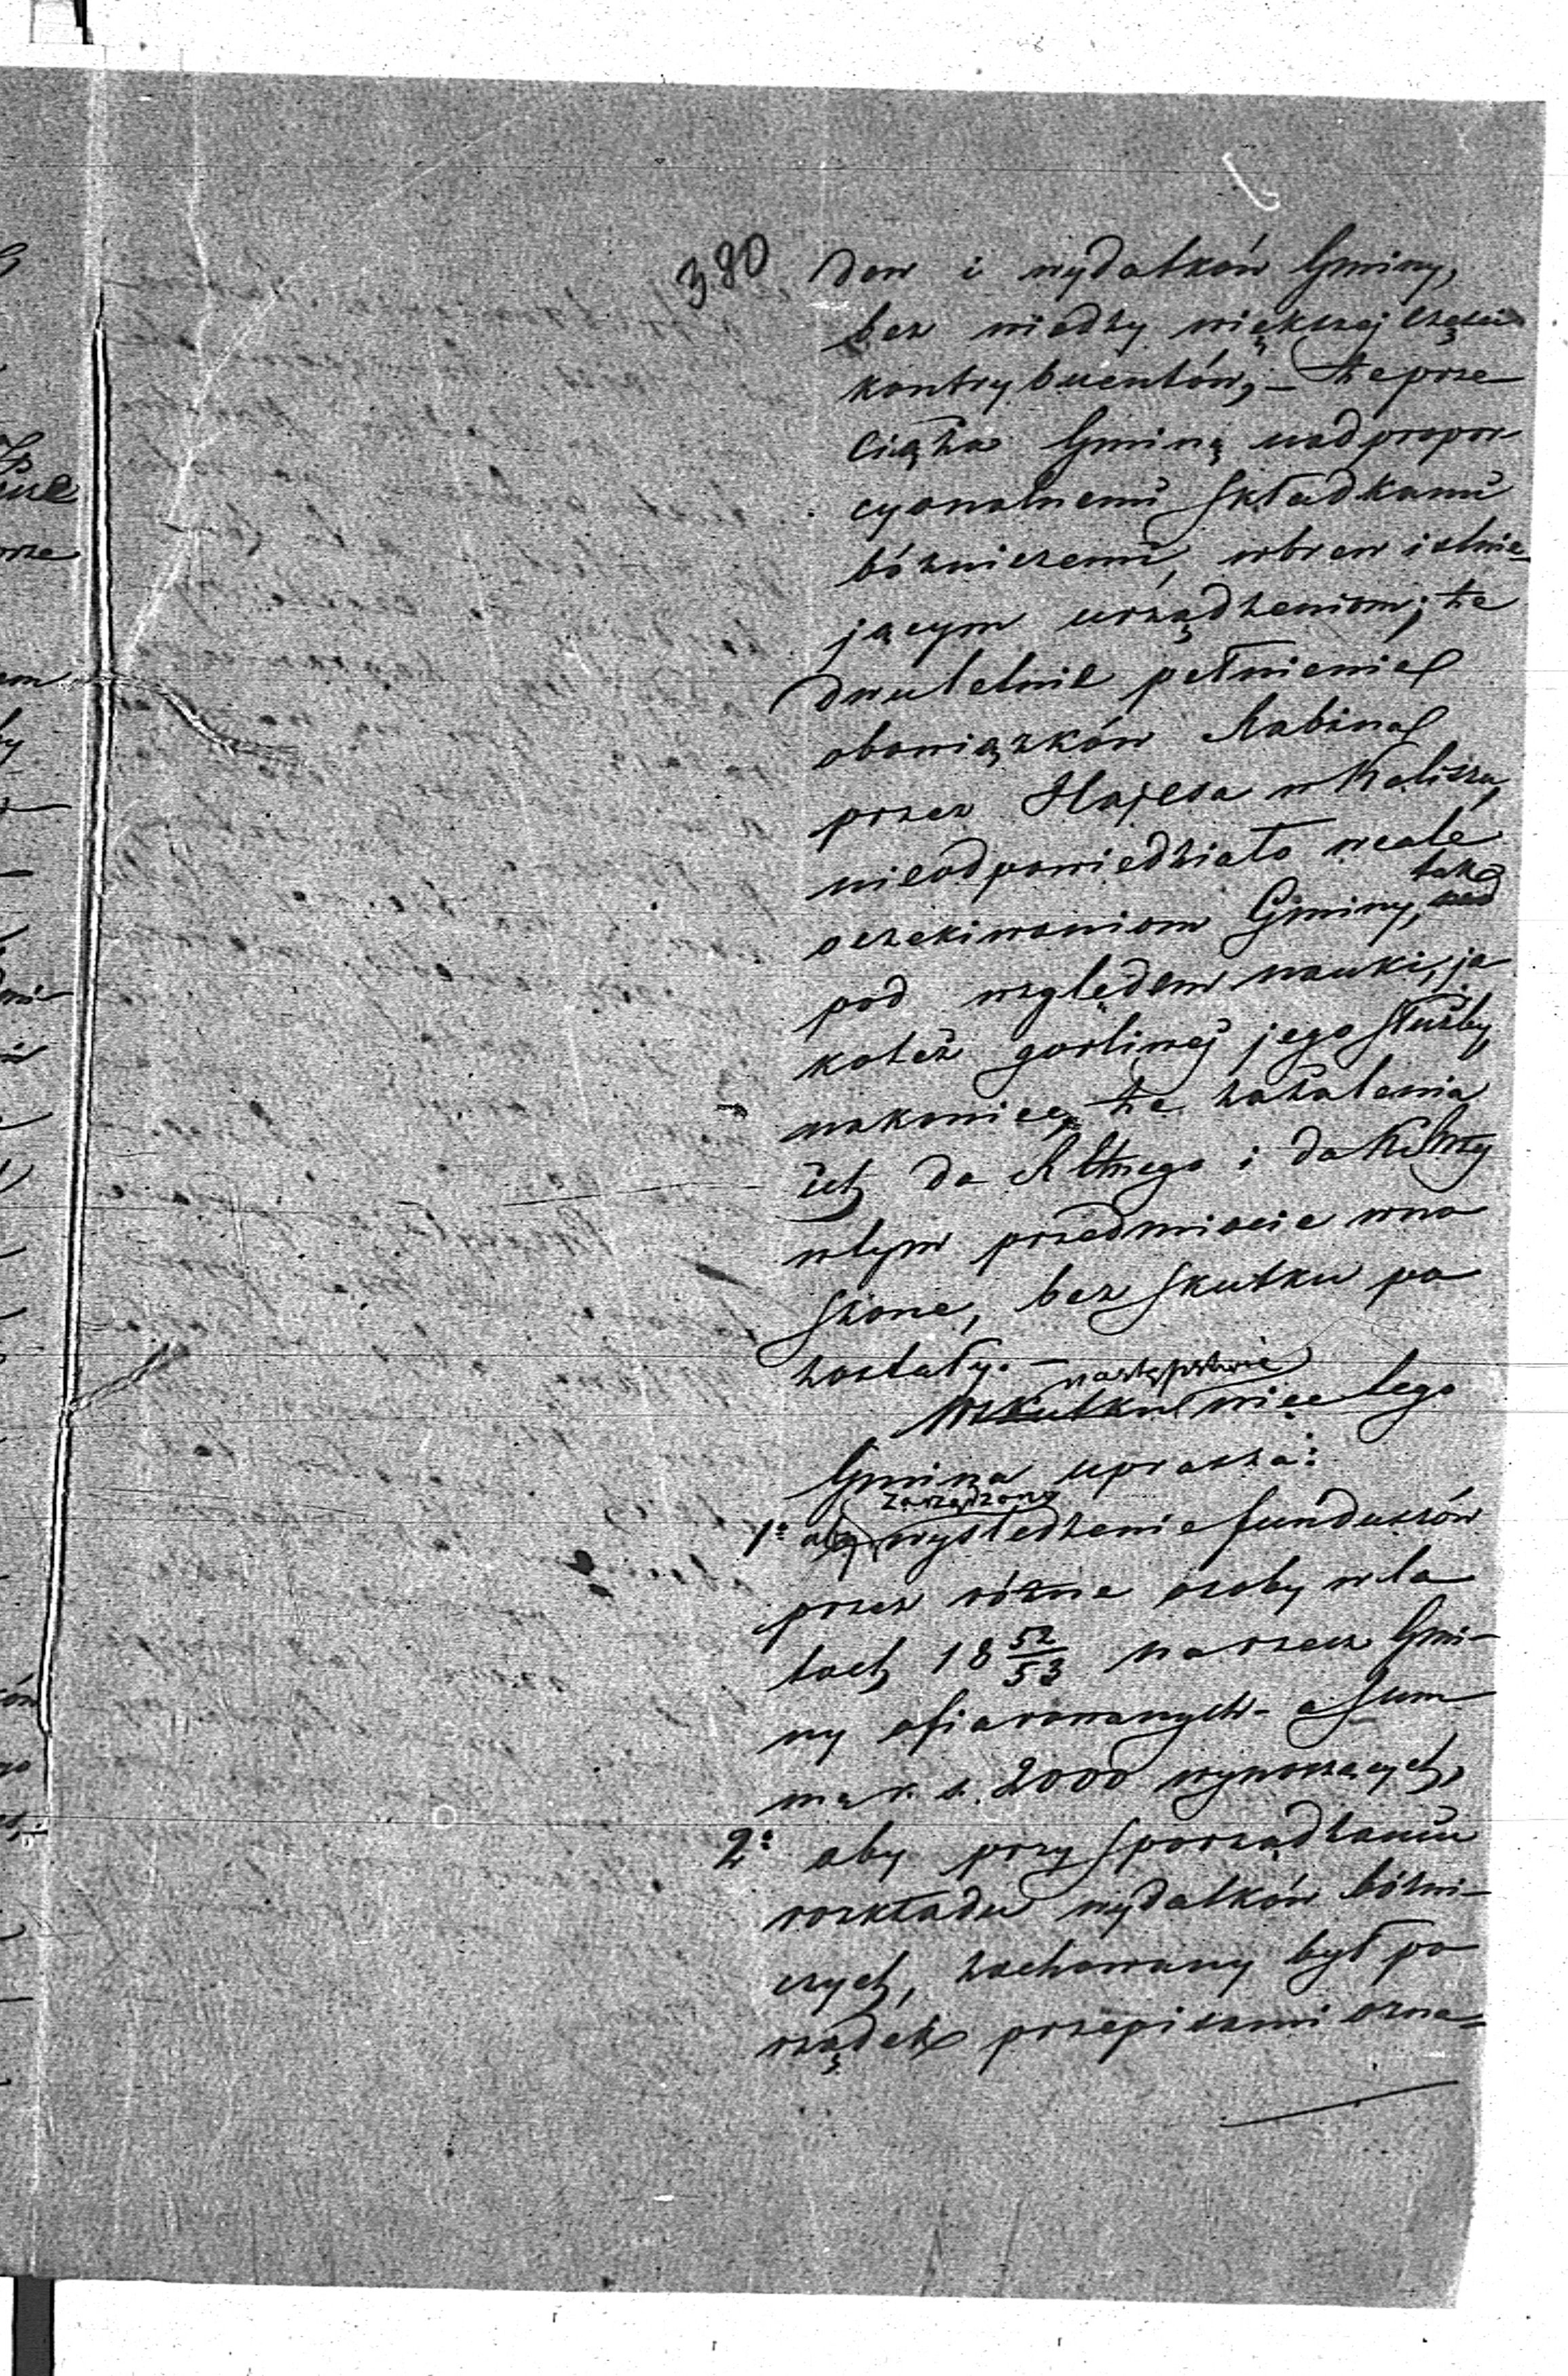 380
dow i wydatków Gminy,
bez wiedzy większej części
kontrybuentów, – że prze
ciąża Gminę nadpropor
cyonalnemi składkami
bóżniczemi, wbrew istnie-
jącym urządzeniom; że
dwuletnie pełnienie
obowiązków Rabina
przez Hajesa w Kaliszu,
nieodpowiedziało wcale
oczekiwaniom Gminy, tak
pod względem nauki, ja
koteż gorliwej jego służby,
nakoniec, że zażalenia
ich do i do
wtym przedmiocie wno
szone, bez skutku po
zostały. –
następstwie
Wskutku więc tego
Gmina uprasza:
zarządzono
1º aby wyśledzenie funduszów
przez różne osoby w la
tach 18 52/53 na rzecz Gmi-
ny ofiarowanych - a sum
mę r. s. 2000 wynoszących,
2º aby przy sporządzaniu
rozkładu wydatków bóżni-
czych, zachowany był po
rządek przepisami ozna-